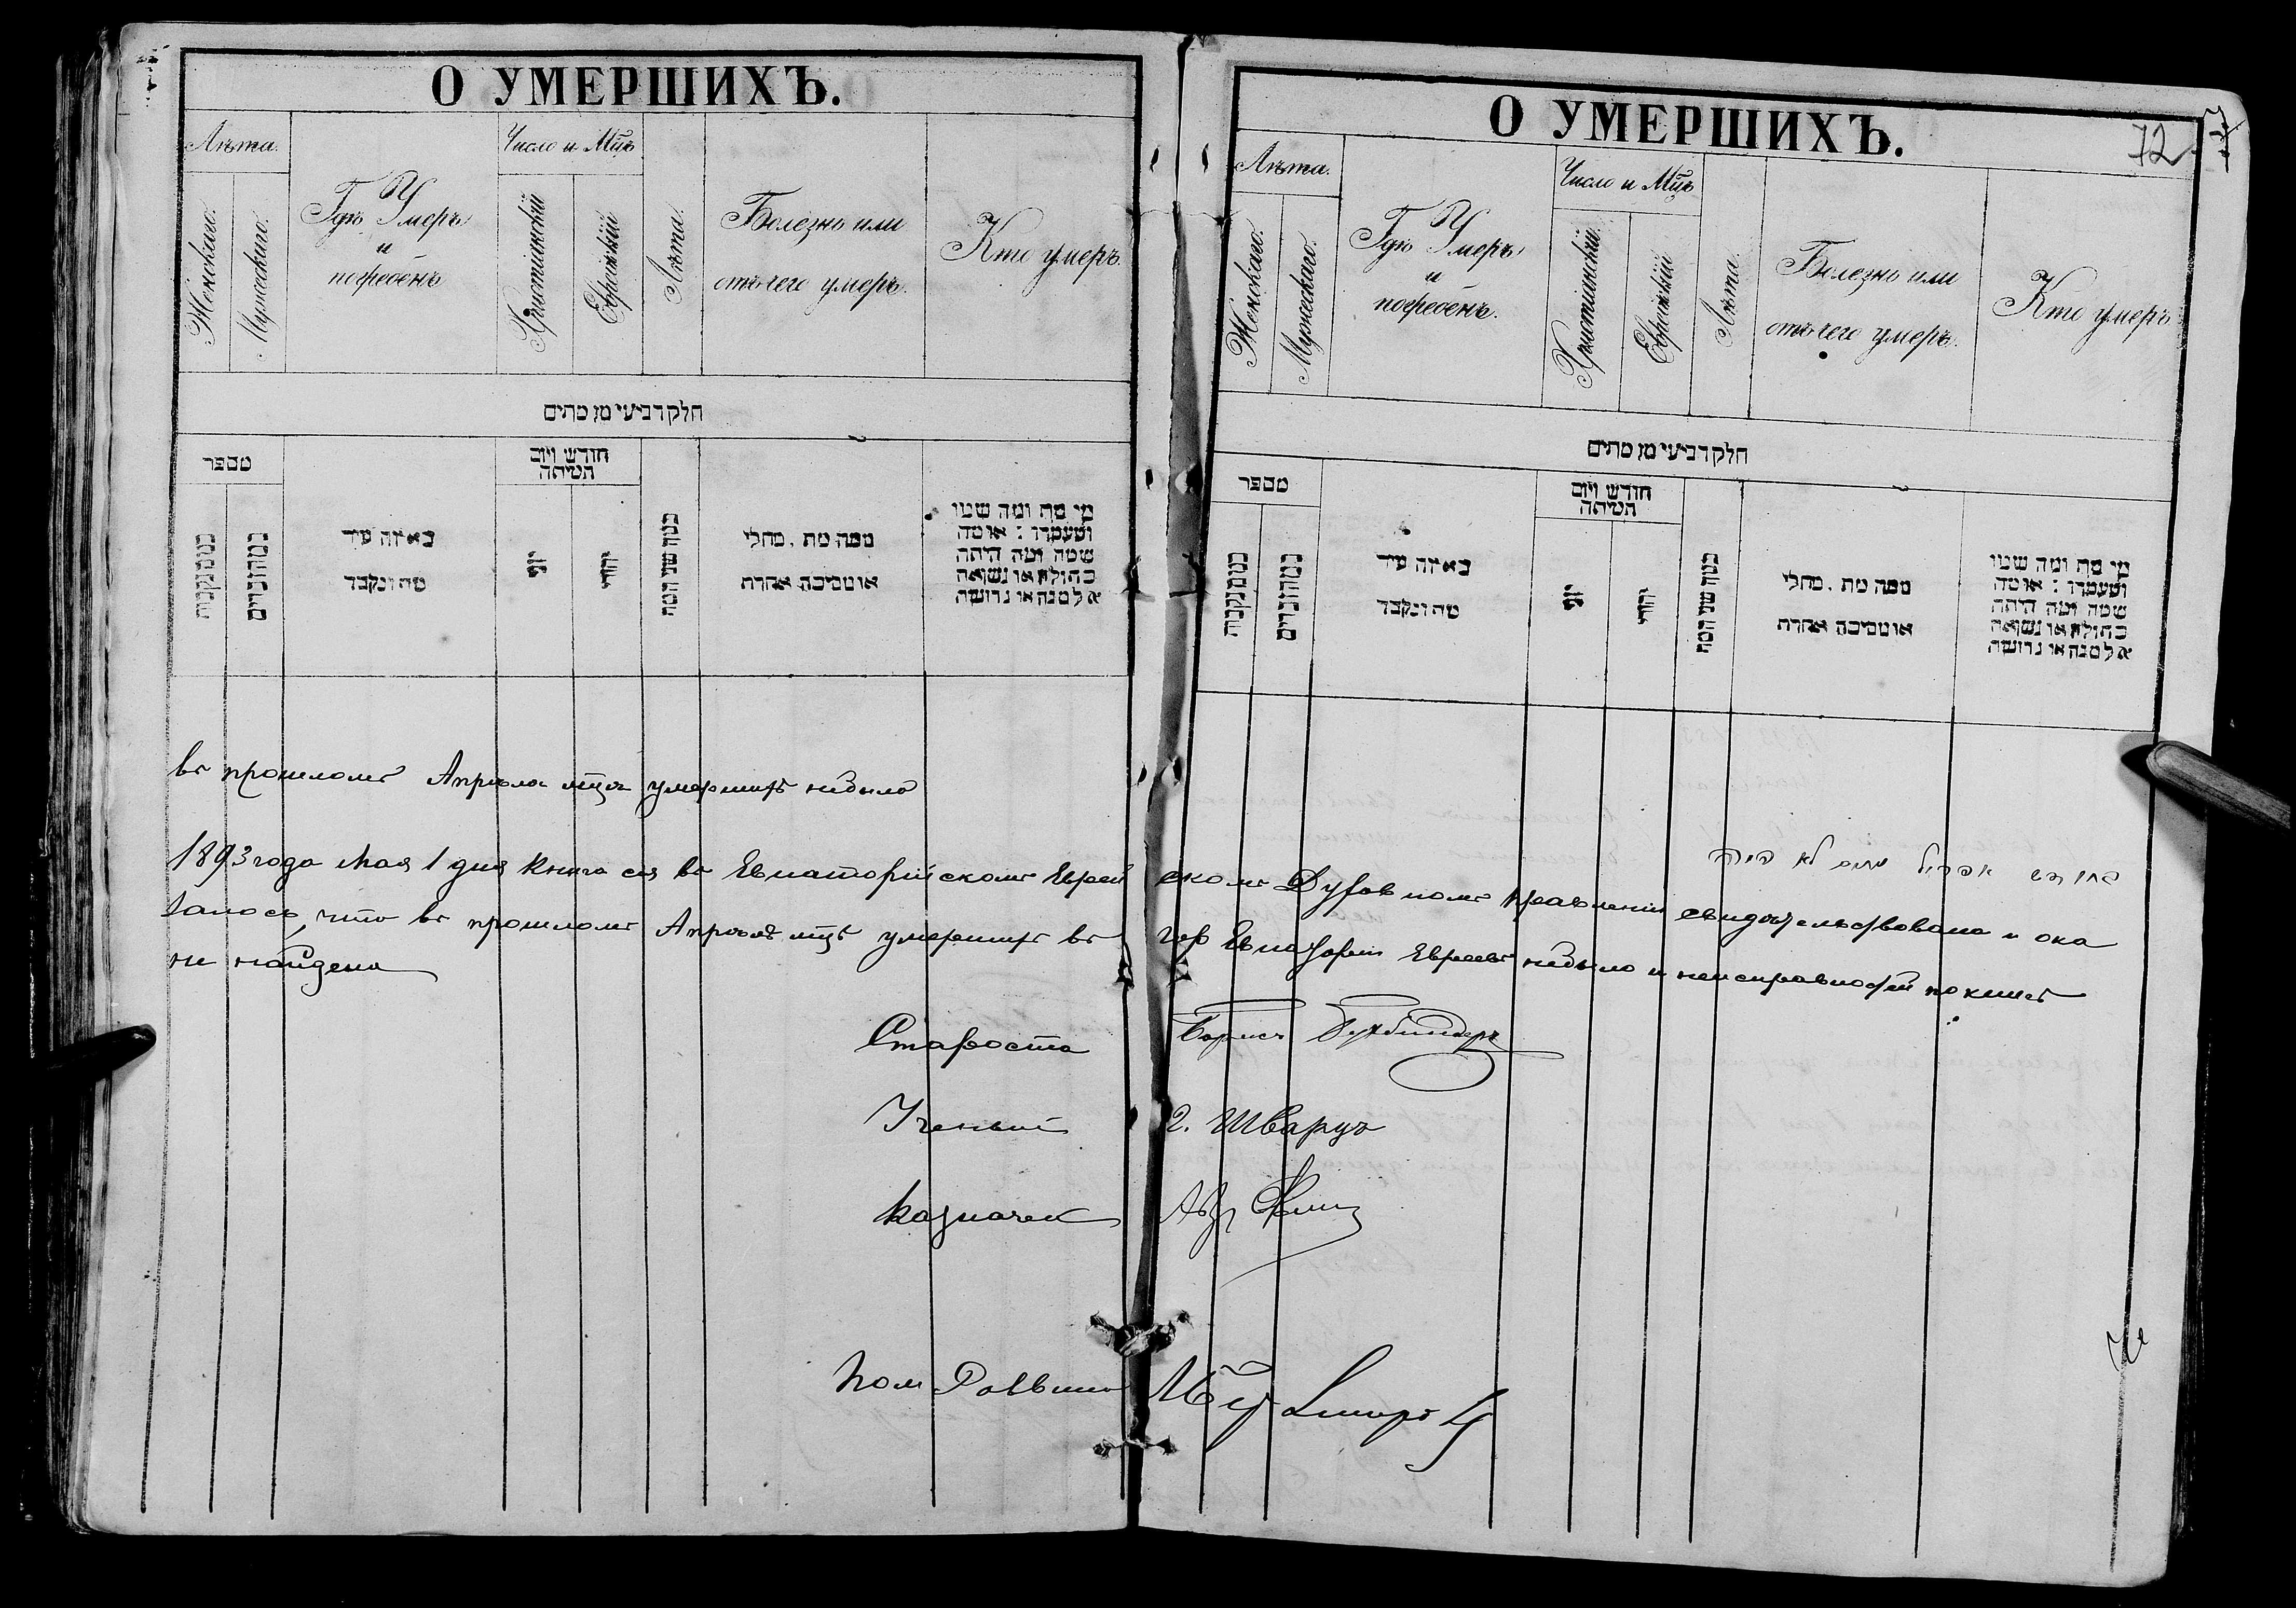 О УМЕРШИХЪ.
Лѣта.
Женскаго.
Мужескаго.
Гдѣ Умеръ
и
погребенъ
Число и Мцъ
Христіанскій
Еврейскій
Лѣта.
Болезнь или
отъ чего умеръ.
Кто умеръ.
חלק רביעי מן מתים
מספר
ממנקבות
ממהזכרים
באיזה עיר
מת ונקבר
חודש ויום
המיתה
יוני
יהודי
כמה שני המת
ממה מת . מחלי
או מסיבה אחרת
מי מת ומה שמו
ומעמדו : או מה
שמה ומה היתה
בתולה או נשואה
אלמנה או גרושה
въ прошломъ Апрѣля мцѣ умершихъ небыло
1893 года Мая 1 дня Книга сія въ Евпаторійскомъ Еврей
залось, что въ прошломъ Апрѣлѣ мцѣ умершихъ въ
не найдено
Староста
Ученый
Казначей
Пом Раввина
О УМЕРШИХЪ.
72
Лѣта.
Женскаго.
Мужескаго.
Гдѣ Умеръ
и
погребенъ.
Число и Мцъ
Христіанскій
Еврейскій
Лѣта.
Болезнь или
отъ чего умеръ.
Кто умеръ
חלק רביעי מן מתים
מספר
ממנקבות
ממהזכרים
באיזה עיר
מת ונקבר
חודש ויום
המיתה
יוני
יהודי
כמה שני המת
ממה מת . מחלי
או מסיבה אחרת
מי מת ומה שמו
ומעמדו : או מה
שמה ומה היתה
בתולה או נשואה
אלמנה או גרושה
אפריל מתים לא היה
скомъ Духовномъ правленіи свидѣтельствована и ока
гор Евпаторіи Евреевъ небыло и неисправностей по книгѣ
Борисъ Бухбиндеръ
Г. Шварцъ